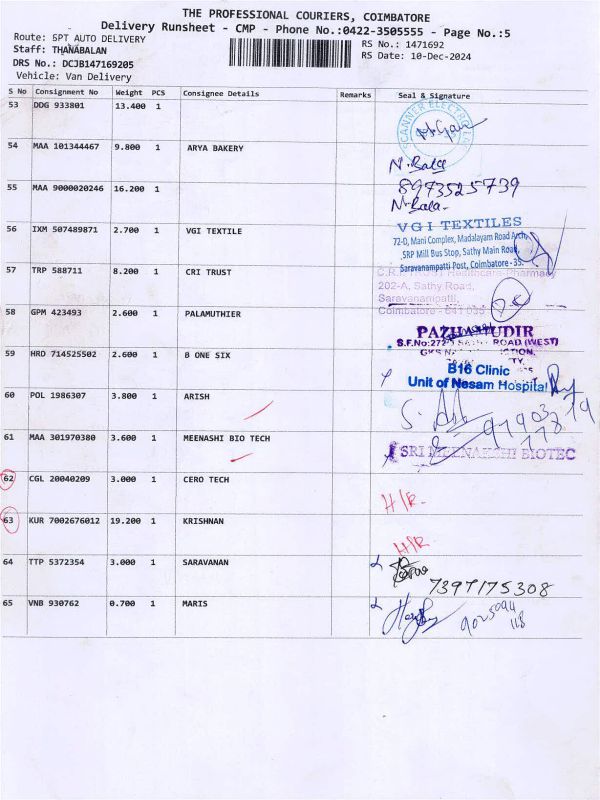 THE PROFESSIONAL COURIERS, COIMBATORE
Delivery Runsheet - CMP - Phone No.:0422-3505555 - Page No.:5
Route: SPT AUTO DELIVERY
Staff: THANABALAN
DRS No.: DCJB147169205
Vehicle: Van Delivery
RS No.: 1471692
RS Date: 10-Dec-2024
S No Consignment No Weight PCS Consignee Details Remarks Seal & Signature
53 DDG 933801 13.400 1
SCANNER ELECTRO
54 MAA 101344467 9.800 1 ARYA BAKERY
N. Bala
55 MAA 9000020246 16.200 1
8973525739
N. Bala
56 IXM 507489871 2.700 1 VGI TEXTILE
VGI TEXTILES
72-D, Mani Complex, Madalayam Road Arch,
SRP Mill Bus Stop, Sathy Main Road,
Saravanampatti Post, Coimbatore - 35.
57 TRP 588711 8.200 1 CRI TRUST
C.R.I. TRUST Healthcare-Pharmacy
202-A, Sathy Road,
Saravanampatti,
Coimbatore - 641 035
58 GPM 423493 2.600 1 PALAMUTHIER
PAZHAMUDIR
S.F.No:272 ROAD (WEST)
59 HRD 714525502 2.600 1 B ONE SIX
B16 Clinic
Unit of Nesam Hospital
60 POL 1986307 3.800 1 ARISH
61 MAA 301970380 3.600 1 MEENASHI BIO TECH
SRI MEENAKSHI BIOTEC
62 CGL 20040209 3.000 1 CERO TECH
H/R
63 KUR 7002676012 19.200 1 KRISHNAN
H/R
64 TTP 5372354 3.000 1 SARAVANAN
7397175308
65 VNB 930762 0.700 1 MARIS